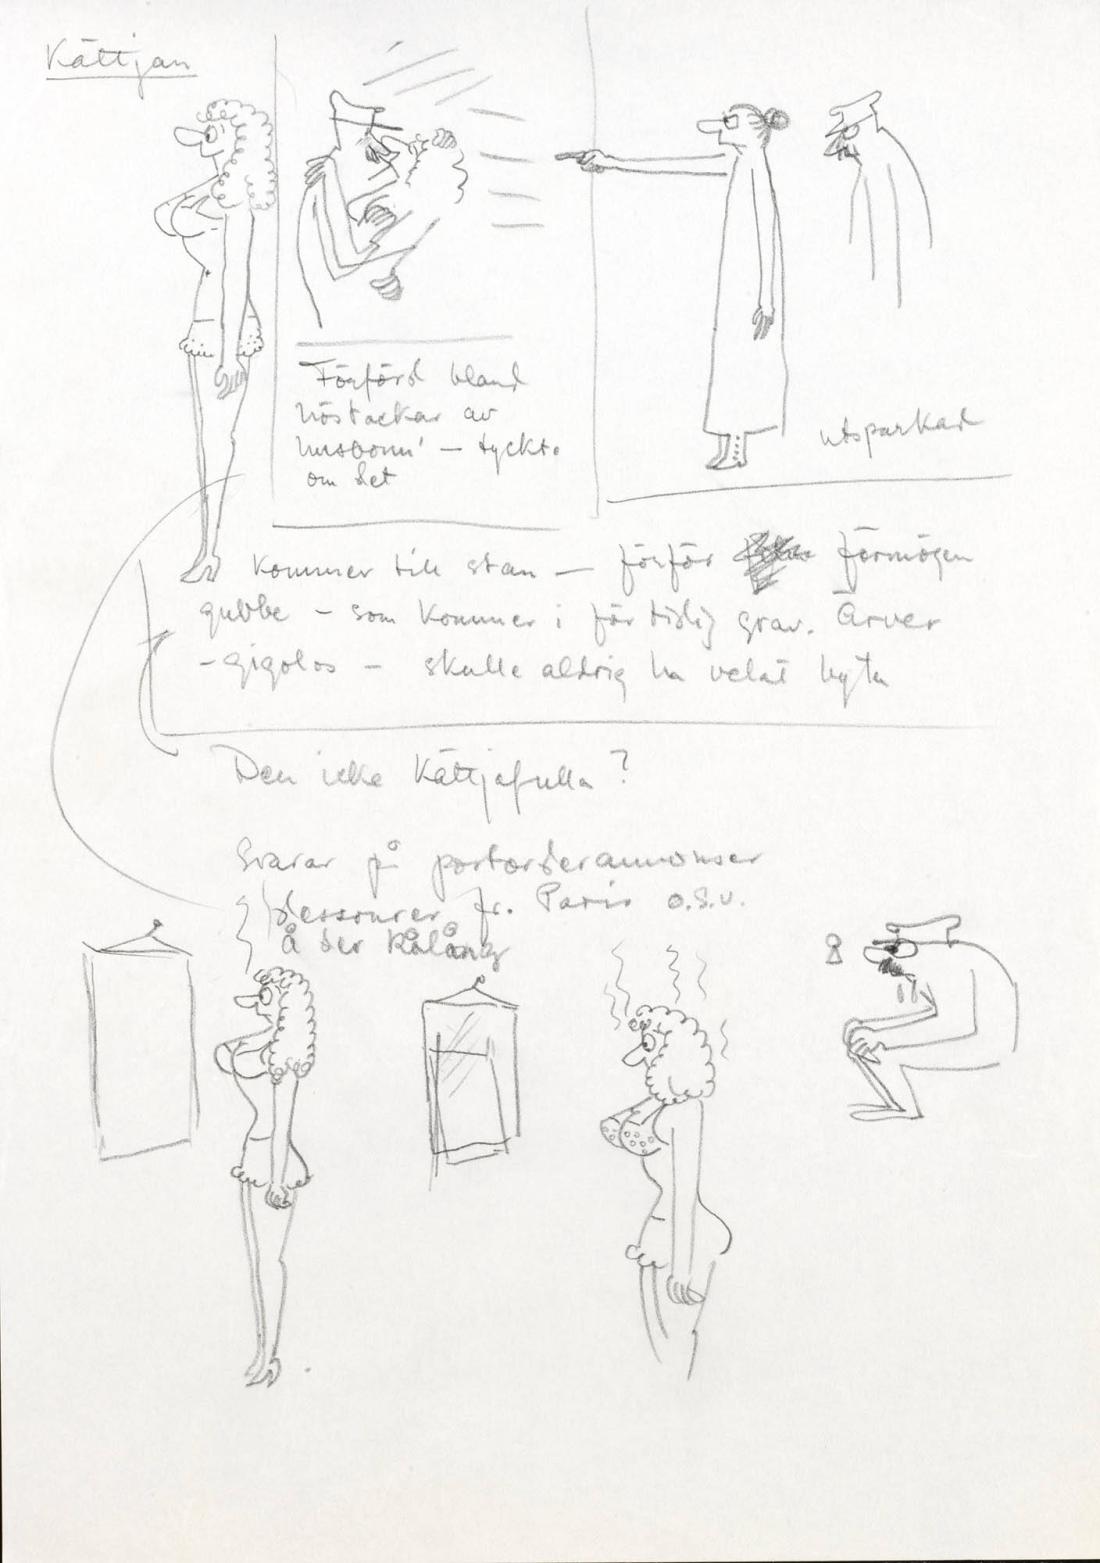 Kättjan
Förförd bland
höstackar av
husbonn' – tyckte
om det
utsparkad
Kommer till stan — förför förmögen
gubbe – som kommer i för tidig grav. Ärver
– gigolos – skulle aldrig ha velat byta
Den icke Kättjefulla?
Svarar på postorderannonser
dessouser fr. Paris o.s.v.
Å der